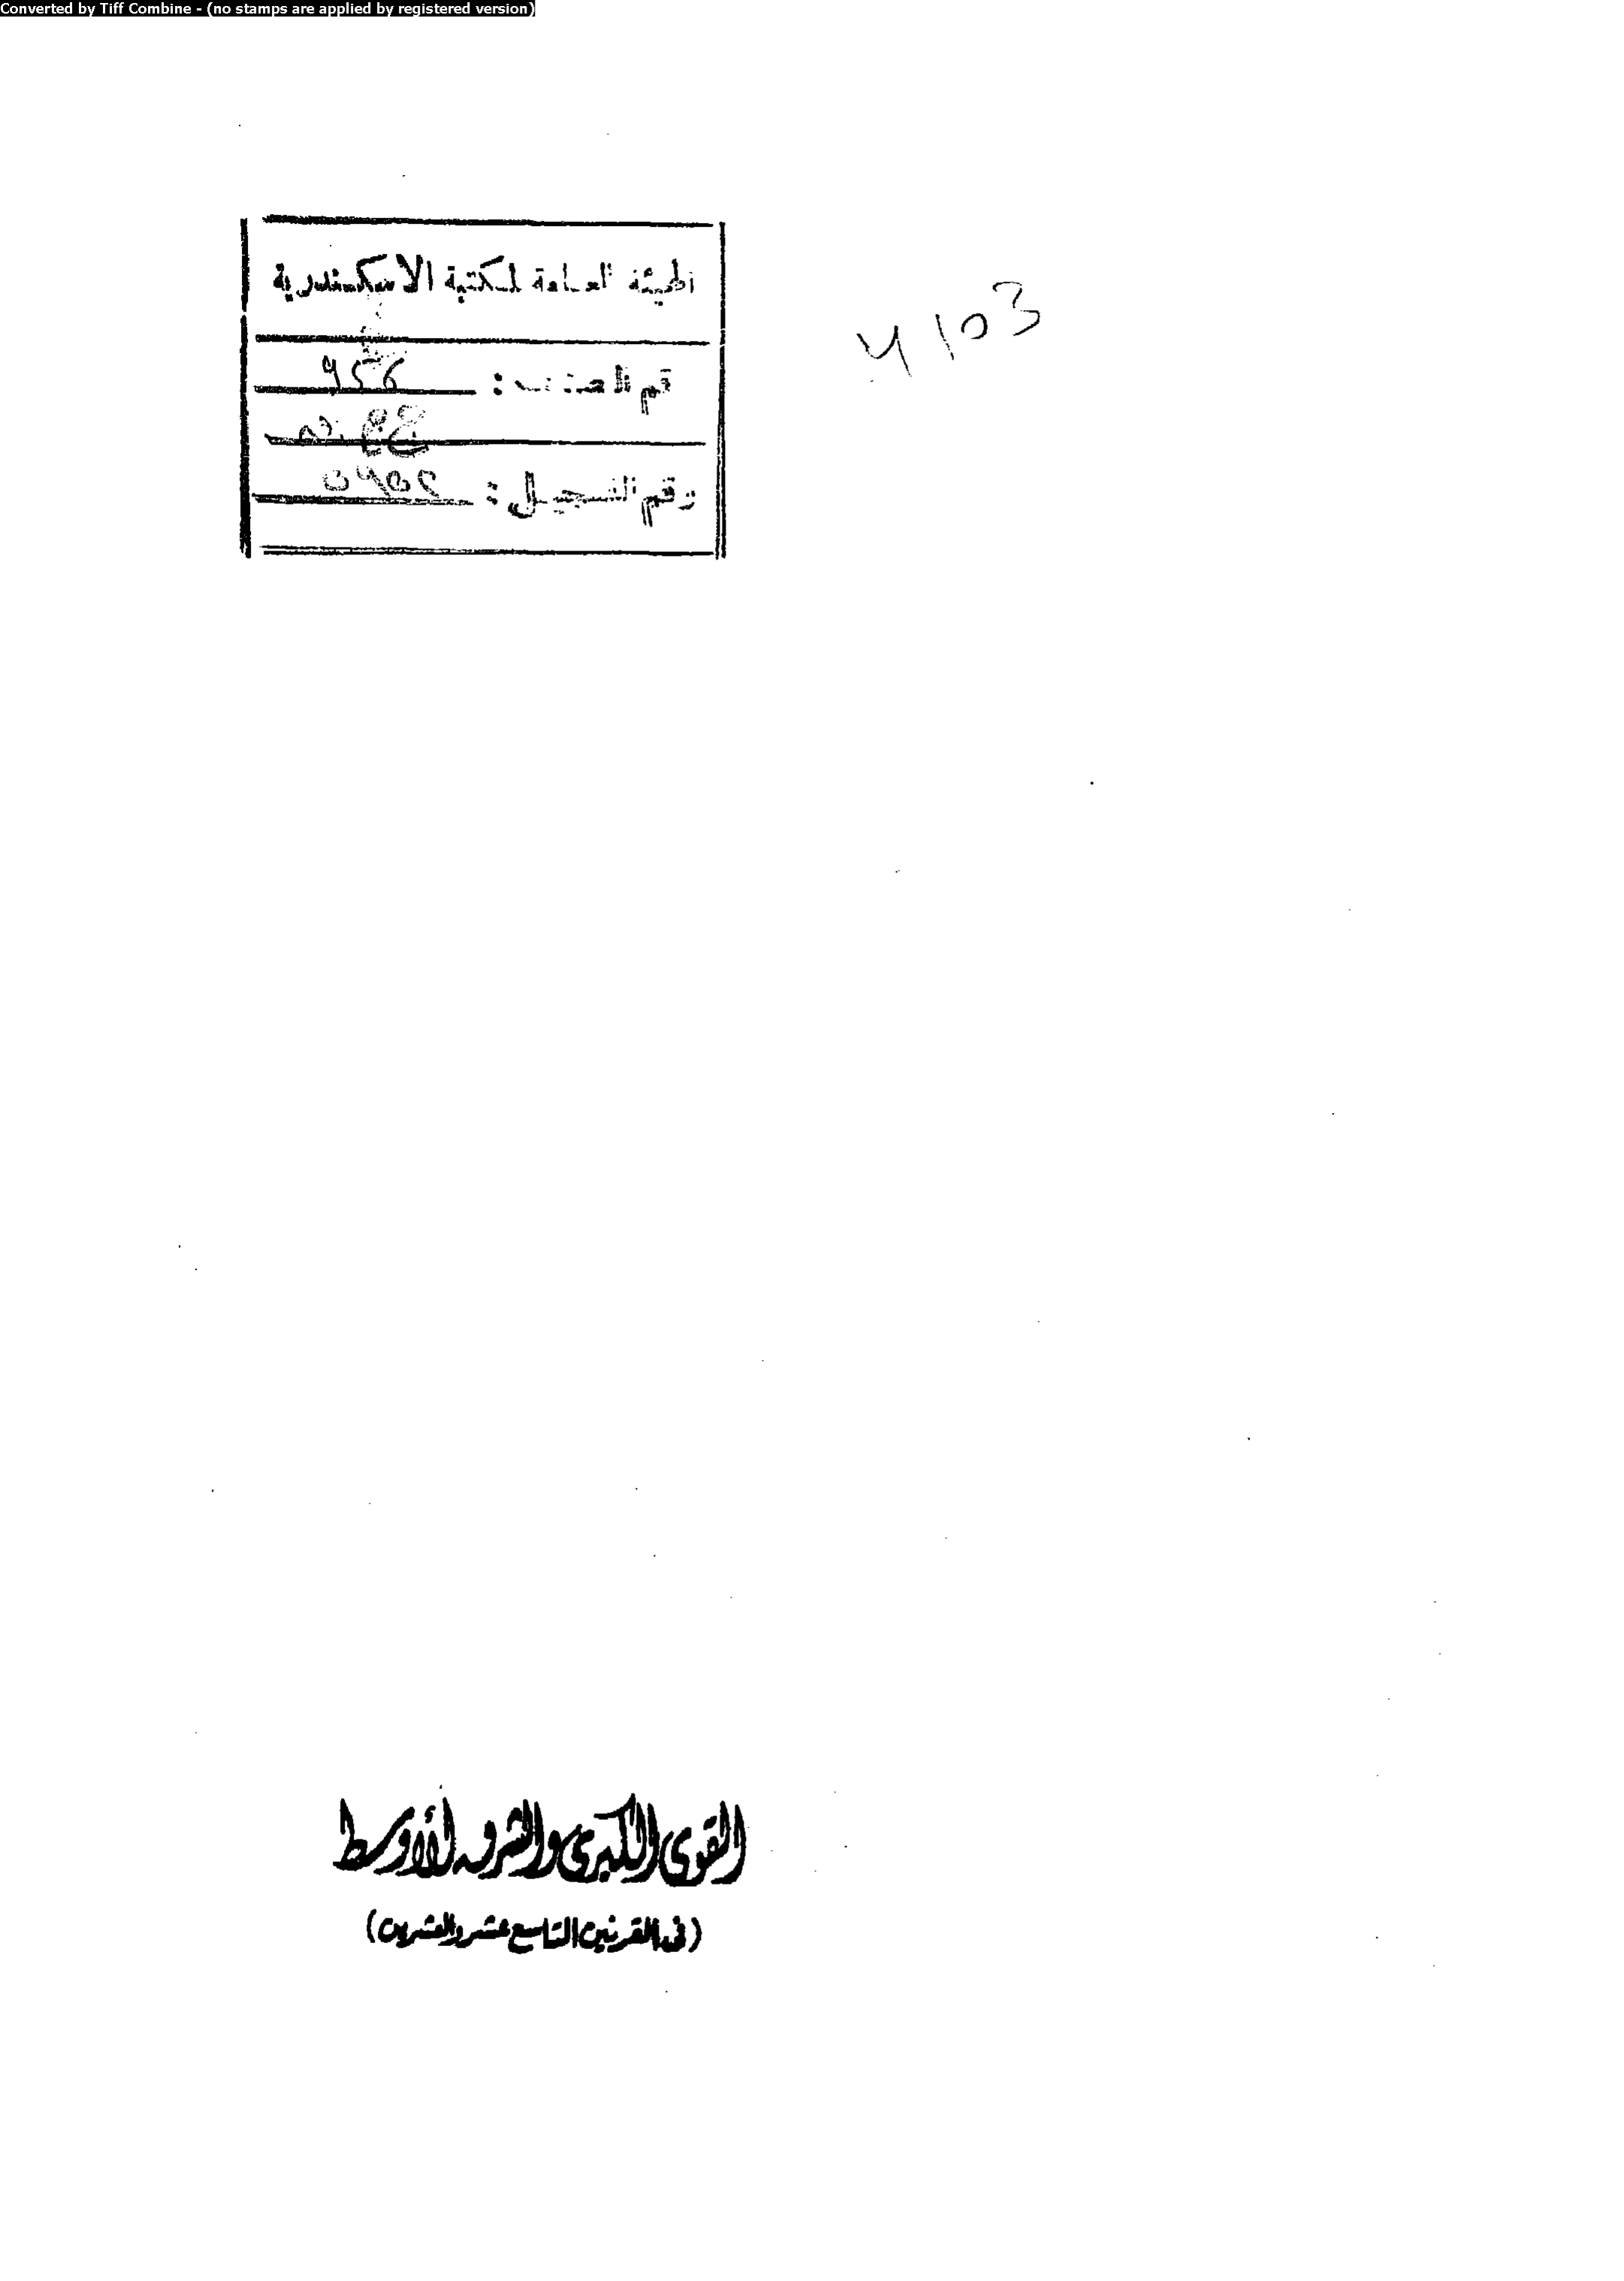 Converted by Tiff Combine - (no stamps are applied by registered version)
الهيئة العامة لمكتبة الاسكندرية
4103
رقم التصنيف : 956
رقم التسجيل :
القوى الكبرى والشرق الأوسط
(فى القرنين التاسع عشر والعشرين)